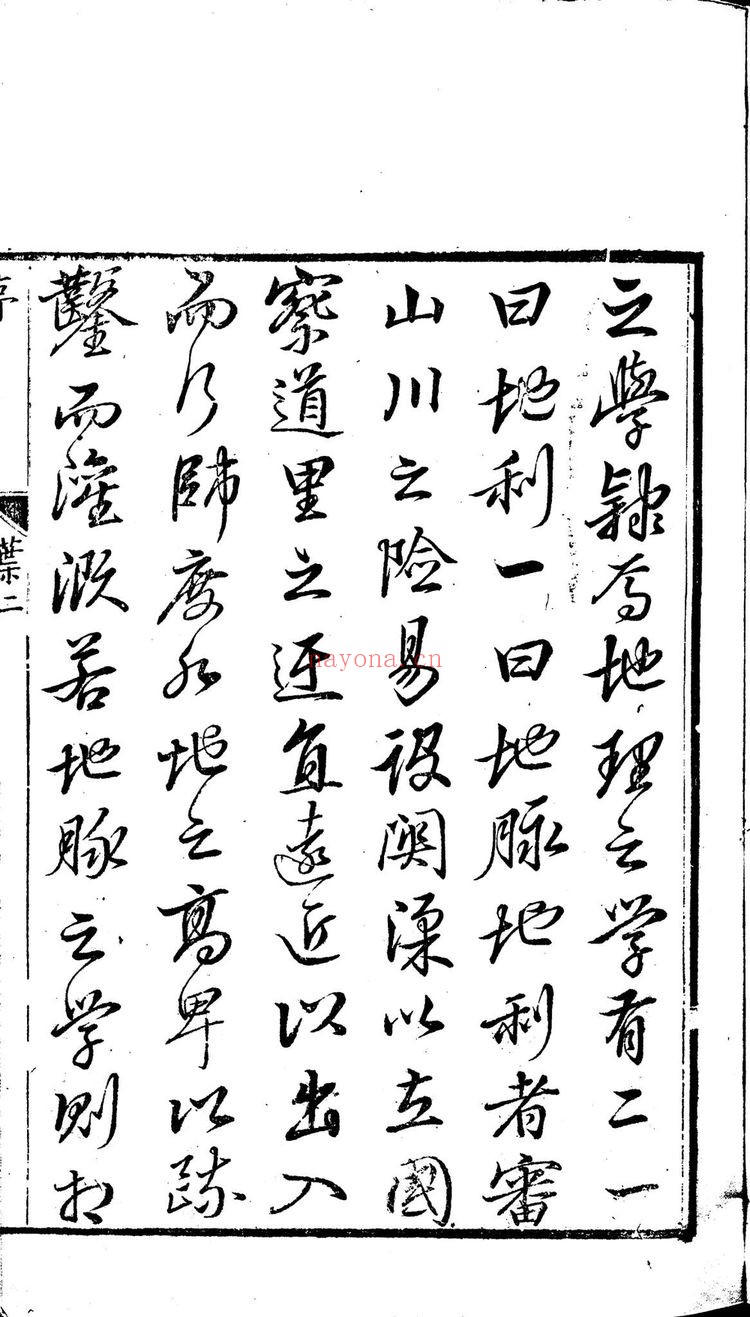 之學隸焉地理之学有二一
曰地利一曰地脉地利者審
山川之險易設関梁以立國
察道里之迂直遠近以出入
而行師度水地之高卑以疏
鑿而灌溉若地脉之学則相
序
葉二
nayona.cn